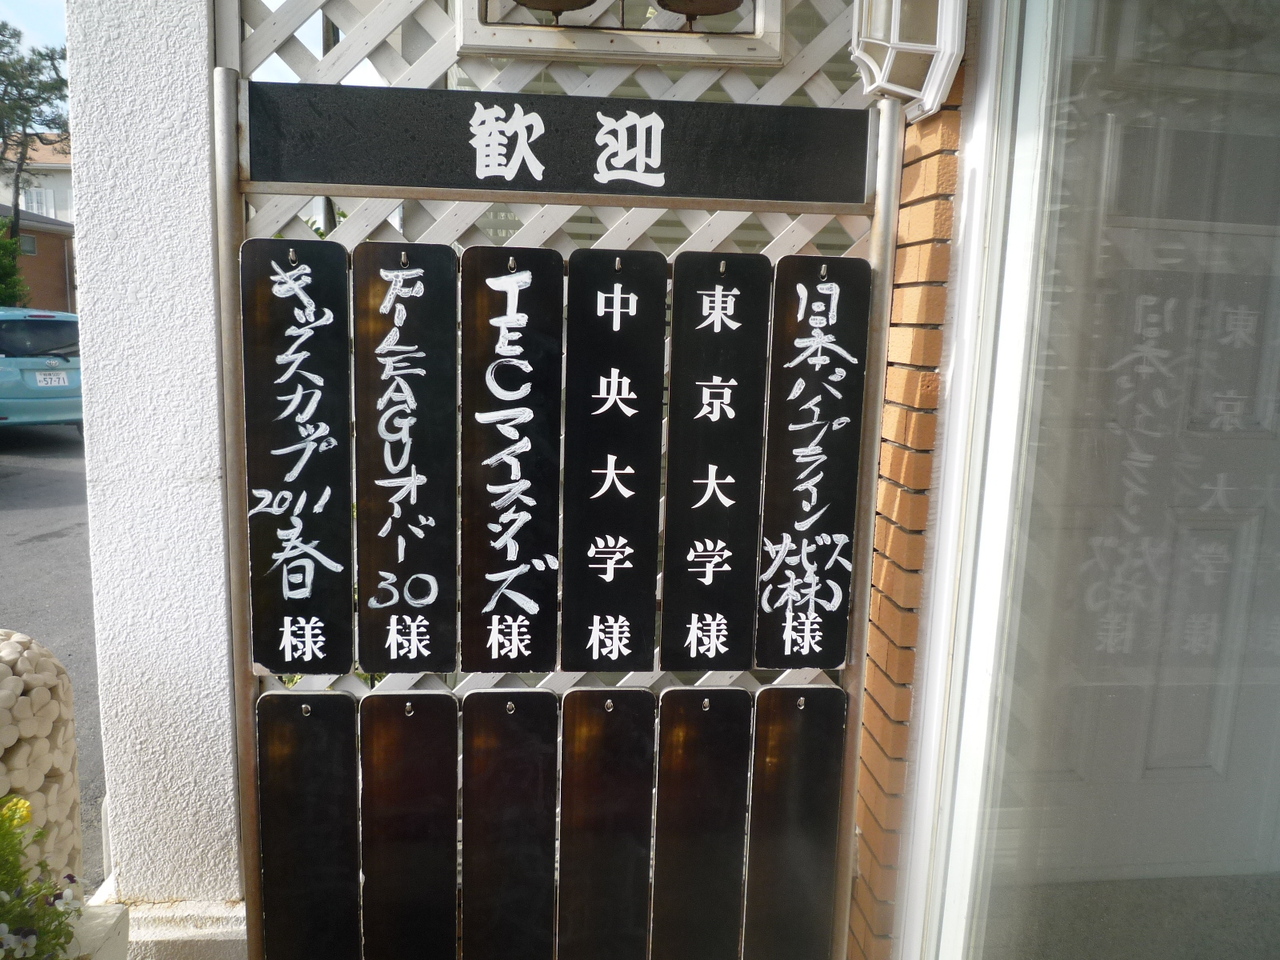 歓迎
日本パイプラインサービス(株)様
東京大学様
中央大学様
TECマイスターズ様
F-LEAGUオーバー30様
キッズカップ2011春様
57-71